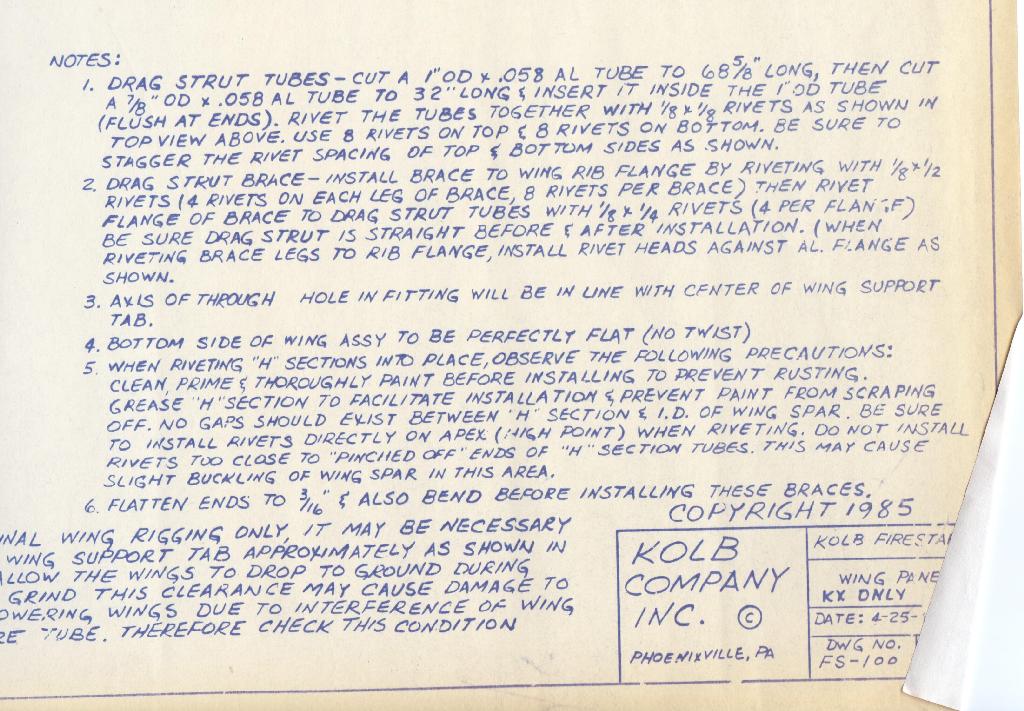 NOTES:
1. DRAG STRUT TUBES - CUT A 1" OD x .058 AL TUBE TO 68 5/8" LONG, THEN CUT
A 7/8" OD x .058 AL TUBE TO 32" LONG & INSERT IT INSIDE THE 1" OD TUBE
(FLUSH AT ENDS). RIVET THE TUBES TOGETHER WITH 1/8 x 1/8 RIVETS AS SHOWN IN
TOP VIEW ABOVE. USE 8 RIVETS ON TOP & 8 RIVETS ON BOTTOM. BE SURE TO
STAGGER THE RIVET SPACING OF TOP & BOTTOM SIDES AS SHOWN.
2. DRAG STRUT BRACE - INSTALL BRACE TO WING RIB FLANGE BY RIVETING WITH 1/8 x 1/2
RIVETS (4 RIVETS ON EACH LEG OF BRACE, 8 RIVETS PER BRACE) THEN RIVET
FLANGE OF BRACE TO DRAG STRUT TUBES WITH 1/8 x 1/4 RIVETS (4 PER FLANGE)
BE SURE DRAG STRUT IS STRAIGHT BEFORE & AFTER INSTALLATION. (WHEN
RIVETING BRACE LEGS TO RIB FLANGE, INSTALL RIVET HEADS AGAINST AL. FLANGE AS
SHOWN.
3. AXIS OF THROUGH HOLE IN FITTING WILL BE IN LINE WITH CENTER OF WING SUPPORT
TAB.
4. BOTTOM SIDE OF WING ASSY TO BE PERFECTLY FLAT (NO TWIST)
5. WHEN RIVETING "H" SECTIONS INTO PLACE, OBSERVE THE FOLLOWING PRECAUTIONS:
CLEAN, PRIME & THOROUGHLY PAINT BEFORE INSTALLING TO PREVENT RUSTING.
GREASE "H" SECTION TO FACILITATE INSTALLATION & PREVENT PAINT FROM SCRAPING
OFF. NO GAPS SHOULD EXIST BETWEEN "H" SECTION & I.D. OF WING SPAR. BE SURE
TO INSTALL RIVETS DIRECTLY ON APEX (HIGH POINT) WHEN RIVETING. DO NOT INSTALL
RIVETS TOO CLOSE TO "PINCHED OFF" ENDS OF "H" SECTION TUBES. THIS MAY CAUSE
SLIGHT BUCKLING OF WING SPAR IN THIS AREA.
6. FLATTEN ENDS TO 3/16" & ALSO BEND BEFORE INSTALLING THESE BRACES.
COPYRIGHT 1985
NAL WING RIGGING ONLY, IT MAY BE NECESSARY
WING SUPPORT TAB APPROXIMATELY AS SHOWN IN
ALLOW THE WINGS TO DROP TO GROUND DURING
GRIND THIS CLEARANCE MAY CAUSE DAMAGE TO
OWERING WINGS DUE TO INTERFERENCE OF WING
RE TUBE. THEREFORE CHECK THIS CONDITION
KOLB
COMPANY
INC. ©
PHOENIXVILLE, PA
KOLB FIRESTA
WING PANE
KX ONLY
DATE: 4-25-
DWG NO.
FS-100